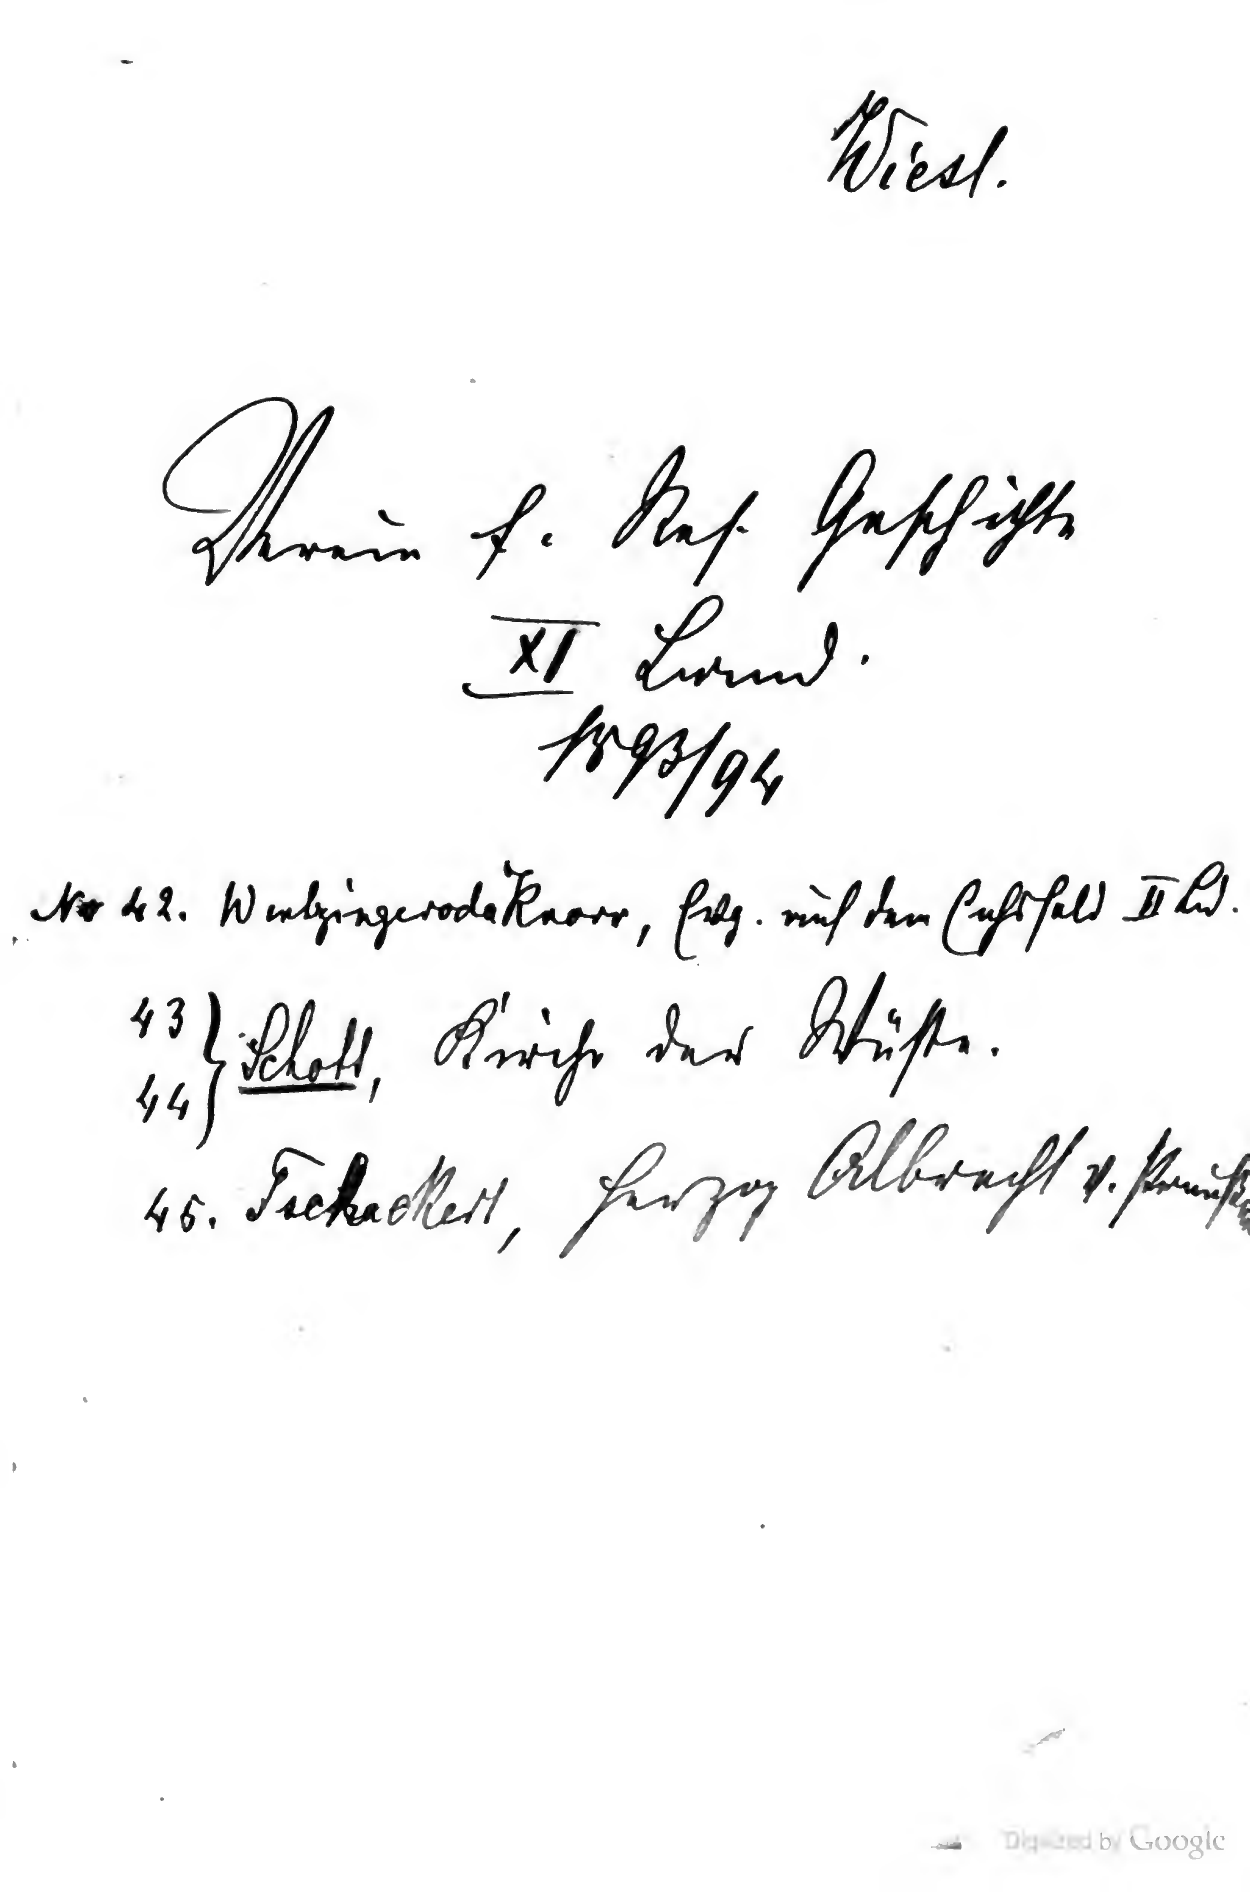 Wiesl.
Verein f. Ref. Geschichte
XI Band.
1893/94
No 42. Wintzingeroda Knorr, Evg. auf dem Eichsfeld II Bd.
43
44 } Schott, Kirche der Wüste.
45. Tschackert, Herzog Albrecht v. Preußen
Digitized by Google